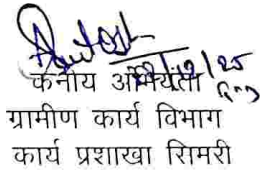 कनीय अभियंता
ग्रामीण कार्य विभाग
कार्य प्रशाखा सिमरी